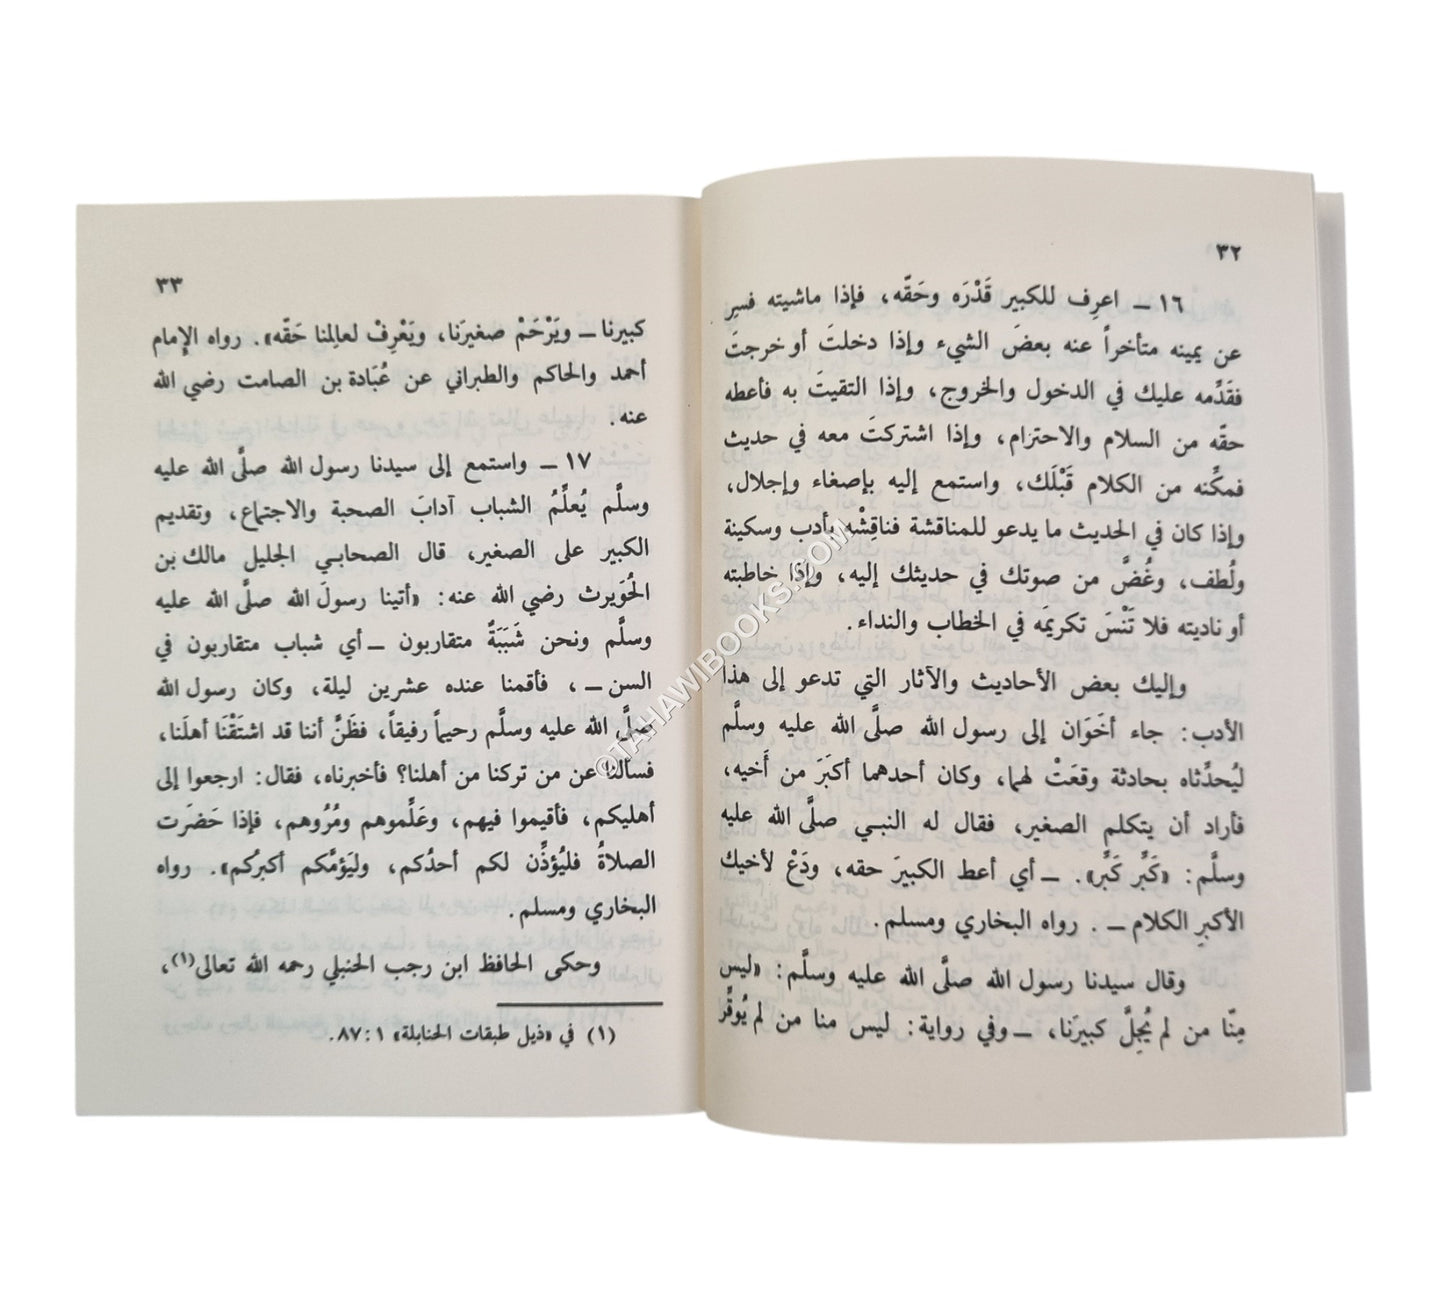 ٣٢
١٦ ــ اعرِف للكبير قَدْرَه وحَقّه، فإذا ماشيته فسِر
عن يمينه متأخراً عنه بعضَ الشيء وإذا دخلتَ أو خرجتَ
فقَدِّمه عليك في الدخول والخروج، وإذا التقيتَ به فأعطه
حقّه من السلام والاحترام، وإذا اشتركتَ معه في حديث
فمكِّنه من الكلام قَبْلَك، واستمع إليه بإصغاء وإجلال،
وإذا كان في الحديث ما يدعو للمناقشة فناقِشْه بأدب وسكينة
ولُطف، وغُضَّ من صوتك في حديثك إليه، وإذا خاطبته
أو ناديته فلا تَنْسَ تكريمَه في الخطاب والنداء.
وإليك بعض الأحاديث والآثار التي تدعو إلى هذا
الأدب: جاء أخَوَان إلى رسول الله صلَّى الله عليه وسلَّم
ليُحدِّثاه بحادثة وقعَتْ لهما، وكان أحدهما أكبَرَ من أَخيه،
فأراد أن يتكلم الصغير، فقال له النبـي صلَّى الله عليه
وسلَّم: «كَبِّر كَبِّر». ــ أي أعط الكبيرَ حقه، ودَعْ لأخيك
الأكبرِ الكلام ــ . رواه البخاري ومسلم.
وقال سيدنا رسول الله صلَّى الله عليه وسلَّم: «ليس
مِنّا من لم يُجِلَّ كبيرَنا، ــ وفي رواية: ليس منا من لم يُوقِّر
٣٣
كبيرنا ــ ويَرْحَمْ صغيرَنا، ويَعْرِفْ لعالِمنا حَقّه». رواه الإمام
أحمد والحاكم والطبراني عن عُبَادة بن الصامت رضي الله
عنه.
١٧ ــ واستمع إلى سيدنا رسول الله صلَّى الله عليه
وسلَّم يُعلِّمُ الشباب آدابَ الصحبة والاجتماع، وتقديم
الكبير على الصغير، قال الصحابـي الجليل مالك بن
الحُوَيرث رضي الله عنه: «أتينا رسولَ الله صلَّى الله عليه
وسلَّم ونحن شَبَبَةٌ متقاربون ــ أي شباب متقاربون في
السن ــ ، فأقمنا عنده عشرين ليلة، وكان رسول الله
صلَّى الله عليه وسلَّم رحيماً رفيقاً، فظَنَّ أننا قد اشتَقْنَا أهلَنا،
فسألنا عن من تركنا من أهلنا؟ فأخبرناه، فقال: ارجعوا إلى
أهليكم، فأقيموا فيهم، وعَلِّموهم ومُرُوهم، فإذا حَضَرَت
الصلاةُ فليُؤذِّن لكم أحدُكم، وليَؤمَّكم أكبرُكم». رواه
البخاري ومسلم.
وحكى الحافظ ابن رجب الحنبلي رحمه الله تعالى(١)،
(١) في «ذيل طبقات الحنابلة» ١:٨٧.
©TAHAWIBOOKS.COM